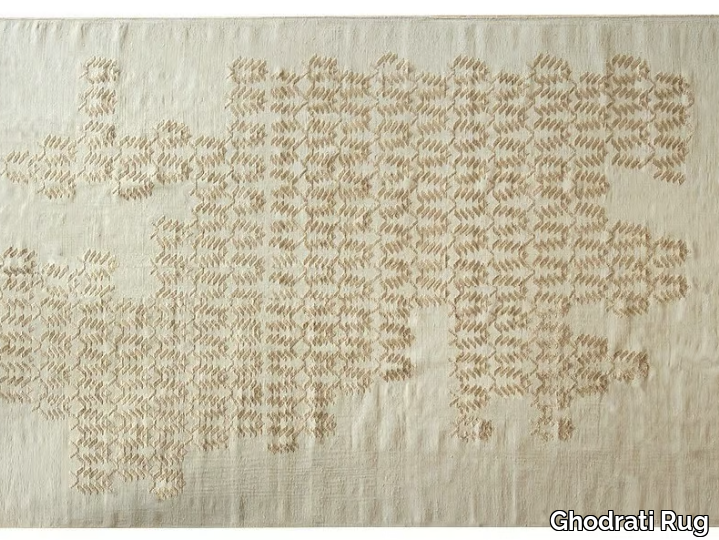 Ghodrati Rug